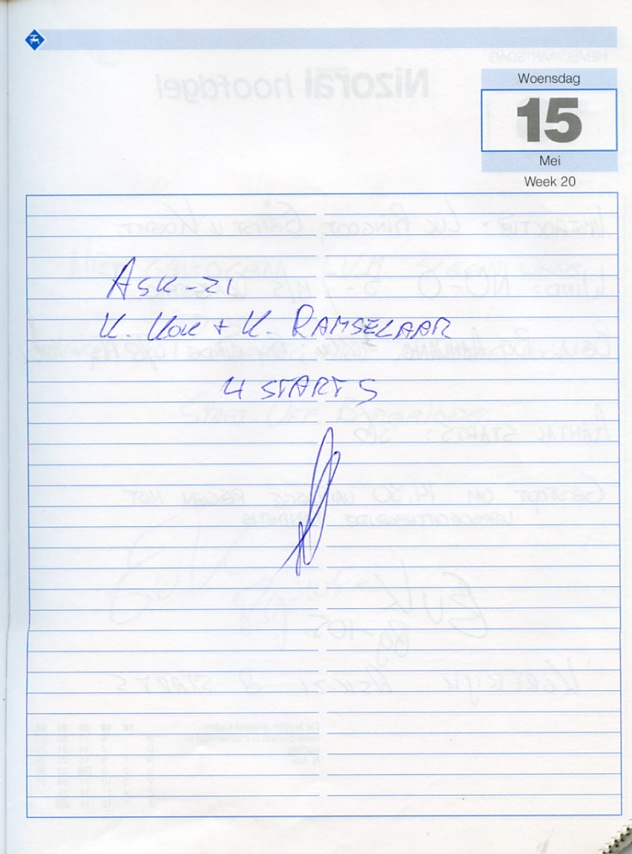 Woensdag
15
Mei
Week 20
ASK-21
K. KOK + K. RAMSELAAR
4 STARTS